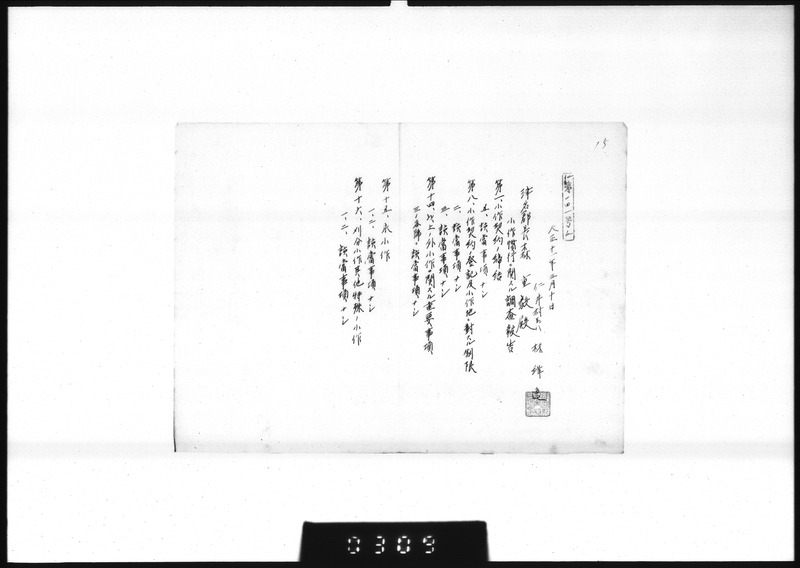 15
大正十一年三月十日
仁井村長
津名郡長 殿
小作慣行ニ関スル調査報告
第一、小作契約ノ締結
五、該当事項ナシ
第八、小作契約ノ登記及小作地ニ対スル制限
二、該当事項ナシ
三、該当事項ナシ
第十四、以上ノ外小作ニ関スル重要事項
三、該当事項ナシ
第十五、永小作
一、二、該当事項ナシ
第十六、刈分小作其他特殊ノ小作
一、二、該当事項ナシ
0309